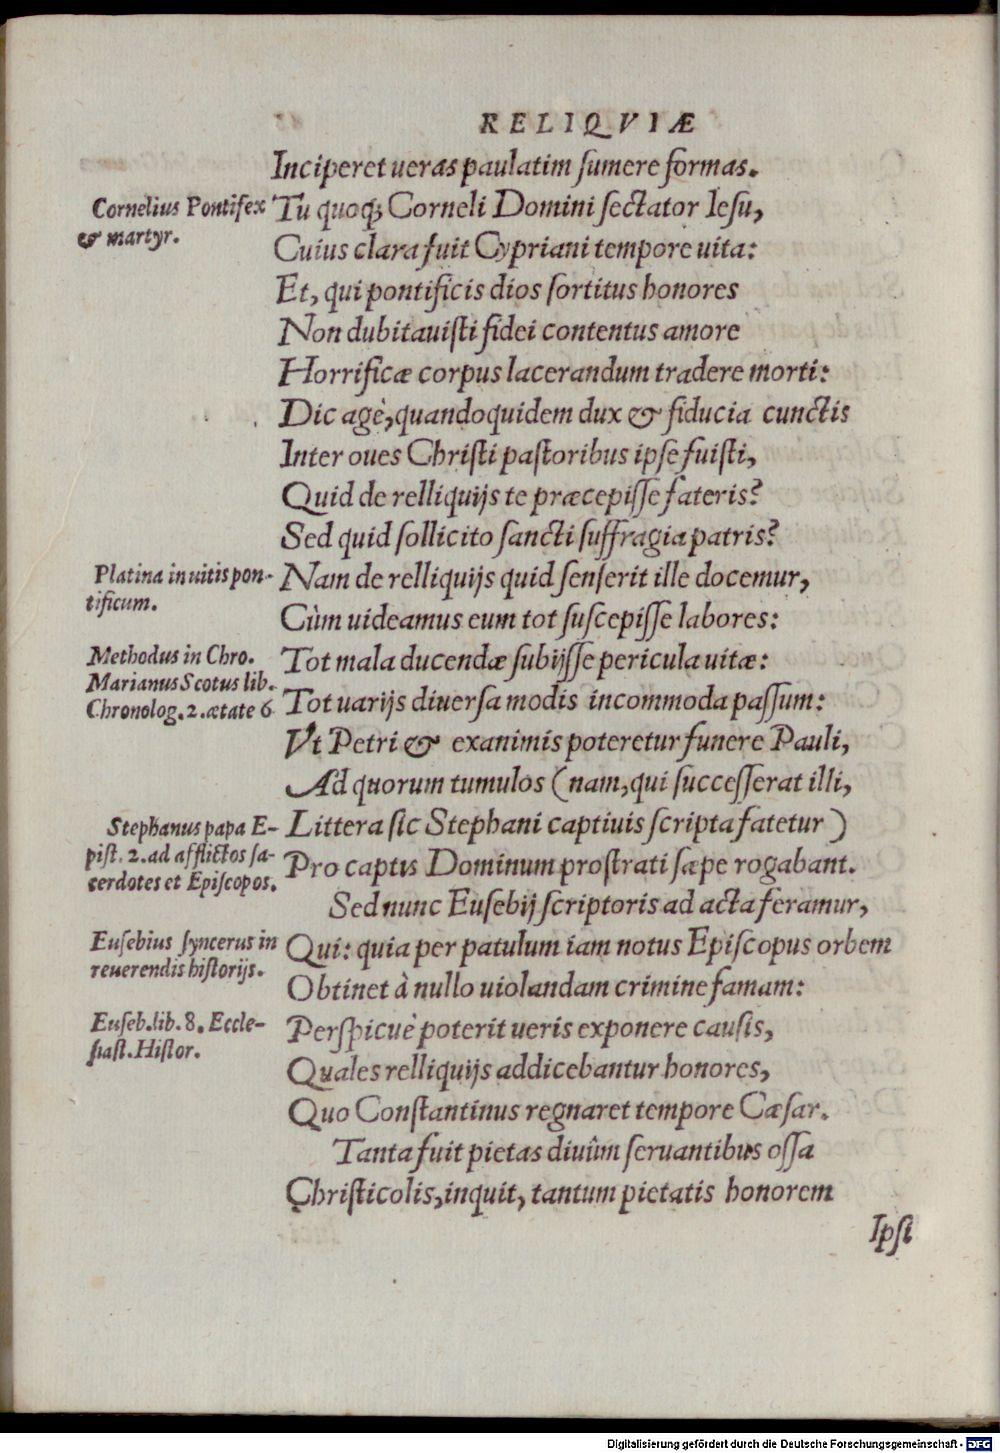 RELIQVIÆ
Inciperet ueras paulatim ſumere formas.
Cornelius Pontifex
& martyr.
Tu quoq; Corneli Domini ſectator Ieſu,
Cuius clara fuit Cypriani tempore uita:
Et, qui pontificis dios ſortitus honores
Non dubitauiſti fidei contentus amore
Horrificæ corpus lacerandum tradere morti:
Dic agè, quandoquidem dux & fiducia cunctis
Inter oues Chriſti paſtoribus ipſe fuiſti,
Quid de relliquijs te præcepiſſe fateris?
Sed quid ſollicito ſancti ſuffragia patris?
Platina in uitis pon-
tificum.
Nam de relliquijs quid ſenſerit ille docemur,
Cùm uideamus eum tot ſuſcepiſſe labores:
Methodus in Chro.
Marianus Scotus lib.
Chronolog. 2. ætate 6
Tot mala ducendæ ſubijſſe pericula uitæ:
Tot uarijs diuerſa modis incommoda paſſum:
Vt Petri & exanimis poteretur funere Pauli,
Ad quorum tumulos (nam, qui ſucceſſerat illi,
Stephanus papa E-
piſt. 2. ad afflictos ſa-
cerdotes et Epiſcopos.
Littera ſic Stephani captiuis ſcripta fatetur)
Pro captis Dominum proſtrati ſæpe rogabant.
Sed nunc Euſebij ſcriptoris ad acta feramur,
Euſebius ſyncerus in
reuerendis hiſtorijs.
Qui: quia per patulum iam notus Epiſcopus orbem
Obtinet à nullo uiolandam crimine famam:
Euſeb. lib. 8. Eccle-
ſiaſt. Hiſtor.
Perſpicuè poterit ueris exponere cauſis,
Quales relliquijs addicebantur honores,
Quo Conſtantinus regnaret tempore Cæſar.
Tanta fuit pietas diuûm ſeruantibus oſſa
Chriſticolis, inquit, tantum pietatis honorem
Ipſi
Digitalisierung gefördert durch die Deutsche Forschungsgemeinschaft - DFG